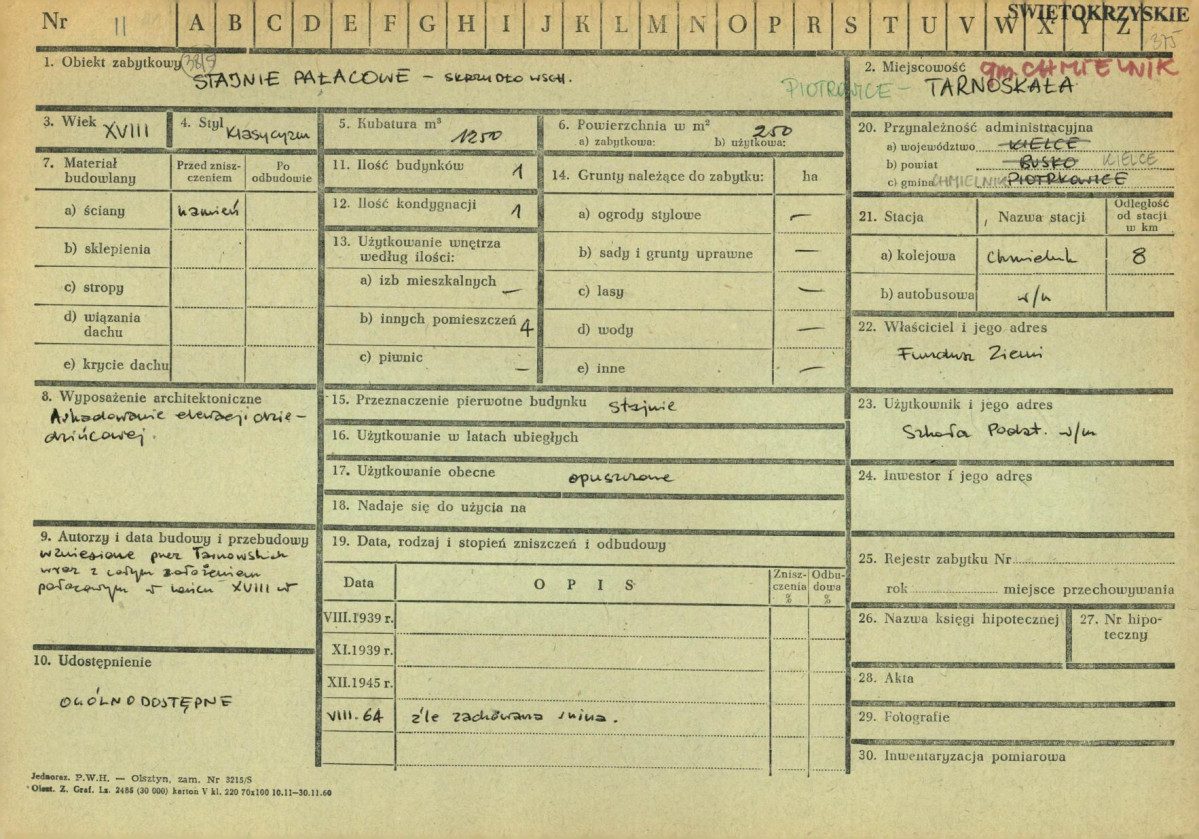 Nr 11 A B C D E F G H I J K L M N O P R S T U V W X Y Z
ŚWIĘTOKRZYSKIE
375
1. Obiekt zabytkowy
STAJNIE PAŁACOWE – SKRZYDŁO WSCH.
2. Miejscowość gm. CHMIELNIK
PIOTROWICE – TARNOSKAŁA
3. Wiek XVIII
4. Styl Klasycyzm
5. Kubatura m³ 1250
6. Powierzchnia w m² 250
a) zabytkowa: b) użytkowa:
7. Materiał budowlany
Przed zniszczeniem
Po odbudowie
a) ściany kamień
b) sklepienia
c) stropy
d) wiązania dachu
e) krycie dachu
8. Wyposażenie architektoniczne
Arkadowanie elewacji dzie-
dzińcowej.
9. Autorzy i data budowy i przebudowy
wzniesione przez Tarnowskich
wraz z całym założeniem
pałacowym w końcu XVIII w
10. Udostępnienie
OGÓLNODOSTĘPNE
11. Ilość budynków 1
12. Ilość kondygnacji 1
13. Użytkowanie wnętrza
według ilości:
a) izb mieszkalnych —
b) innych pomieszczeń 4
c) piwnic —
14. Grunty należące do zabytku: ha
a) ogrody stylowe —
b) sady i grunty uprawne —
c) lasy —
d) wody —
e) inne —
15. Przeznaczenie pierwotne budynku stajnie
16. Użytkowanie w latach ubiegłych
17. Użytkowanie obecne opuszczone
18. Nadaje się do użycia na
19. Data, rodzaj i stopień zniszczeń i odbudowy
Data OPIS Zniszczenia % Odbudowa %
VIII.1939 r.
XI.1939 r.
XII.1945 r.
VIII.64 źle zachowana ruina.
20. Przynależność administracyjna
a) województwo KIELCE
b) powiat BUSKO KIELCE
c) gmina CHMIELNIK PIOTRKOWICE
21. Stacja Nazwa stacji Odległość od stacji w km
a) kolejowa Chmielnik 8
b) autobusowa w/m
22. Właściciel i jego adres
Fundusz Ziemi
23. Użytkownik i jego adres
Szkoła Podst. w/m
24. Inwestor i jego adres
25. Rejestr zabytku Nr
rok miejsce przechowywania
26. Nazwa księgi hipotecznej
27. Nr hipoteczny
28. Akta
29. Fotografie
30. Inwentaryzacja pomiarowa
Jednoraz. P.W.H. — Olsztyn, zam. Nr 3215/S
Olszt. Z. Graf. Lz. 2485 (30 000) karton V kl. 220 70x100 10.11—30.11.60